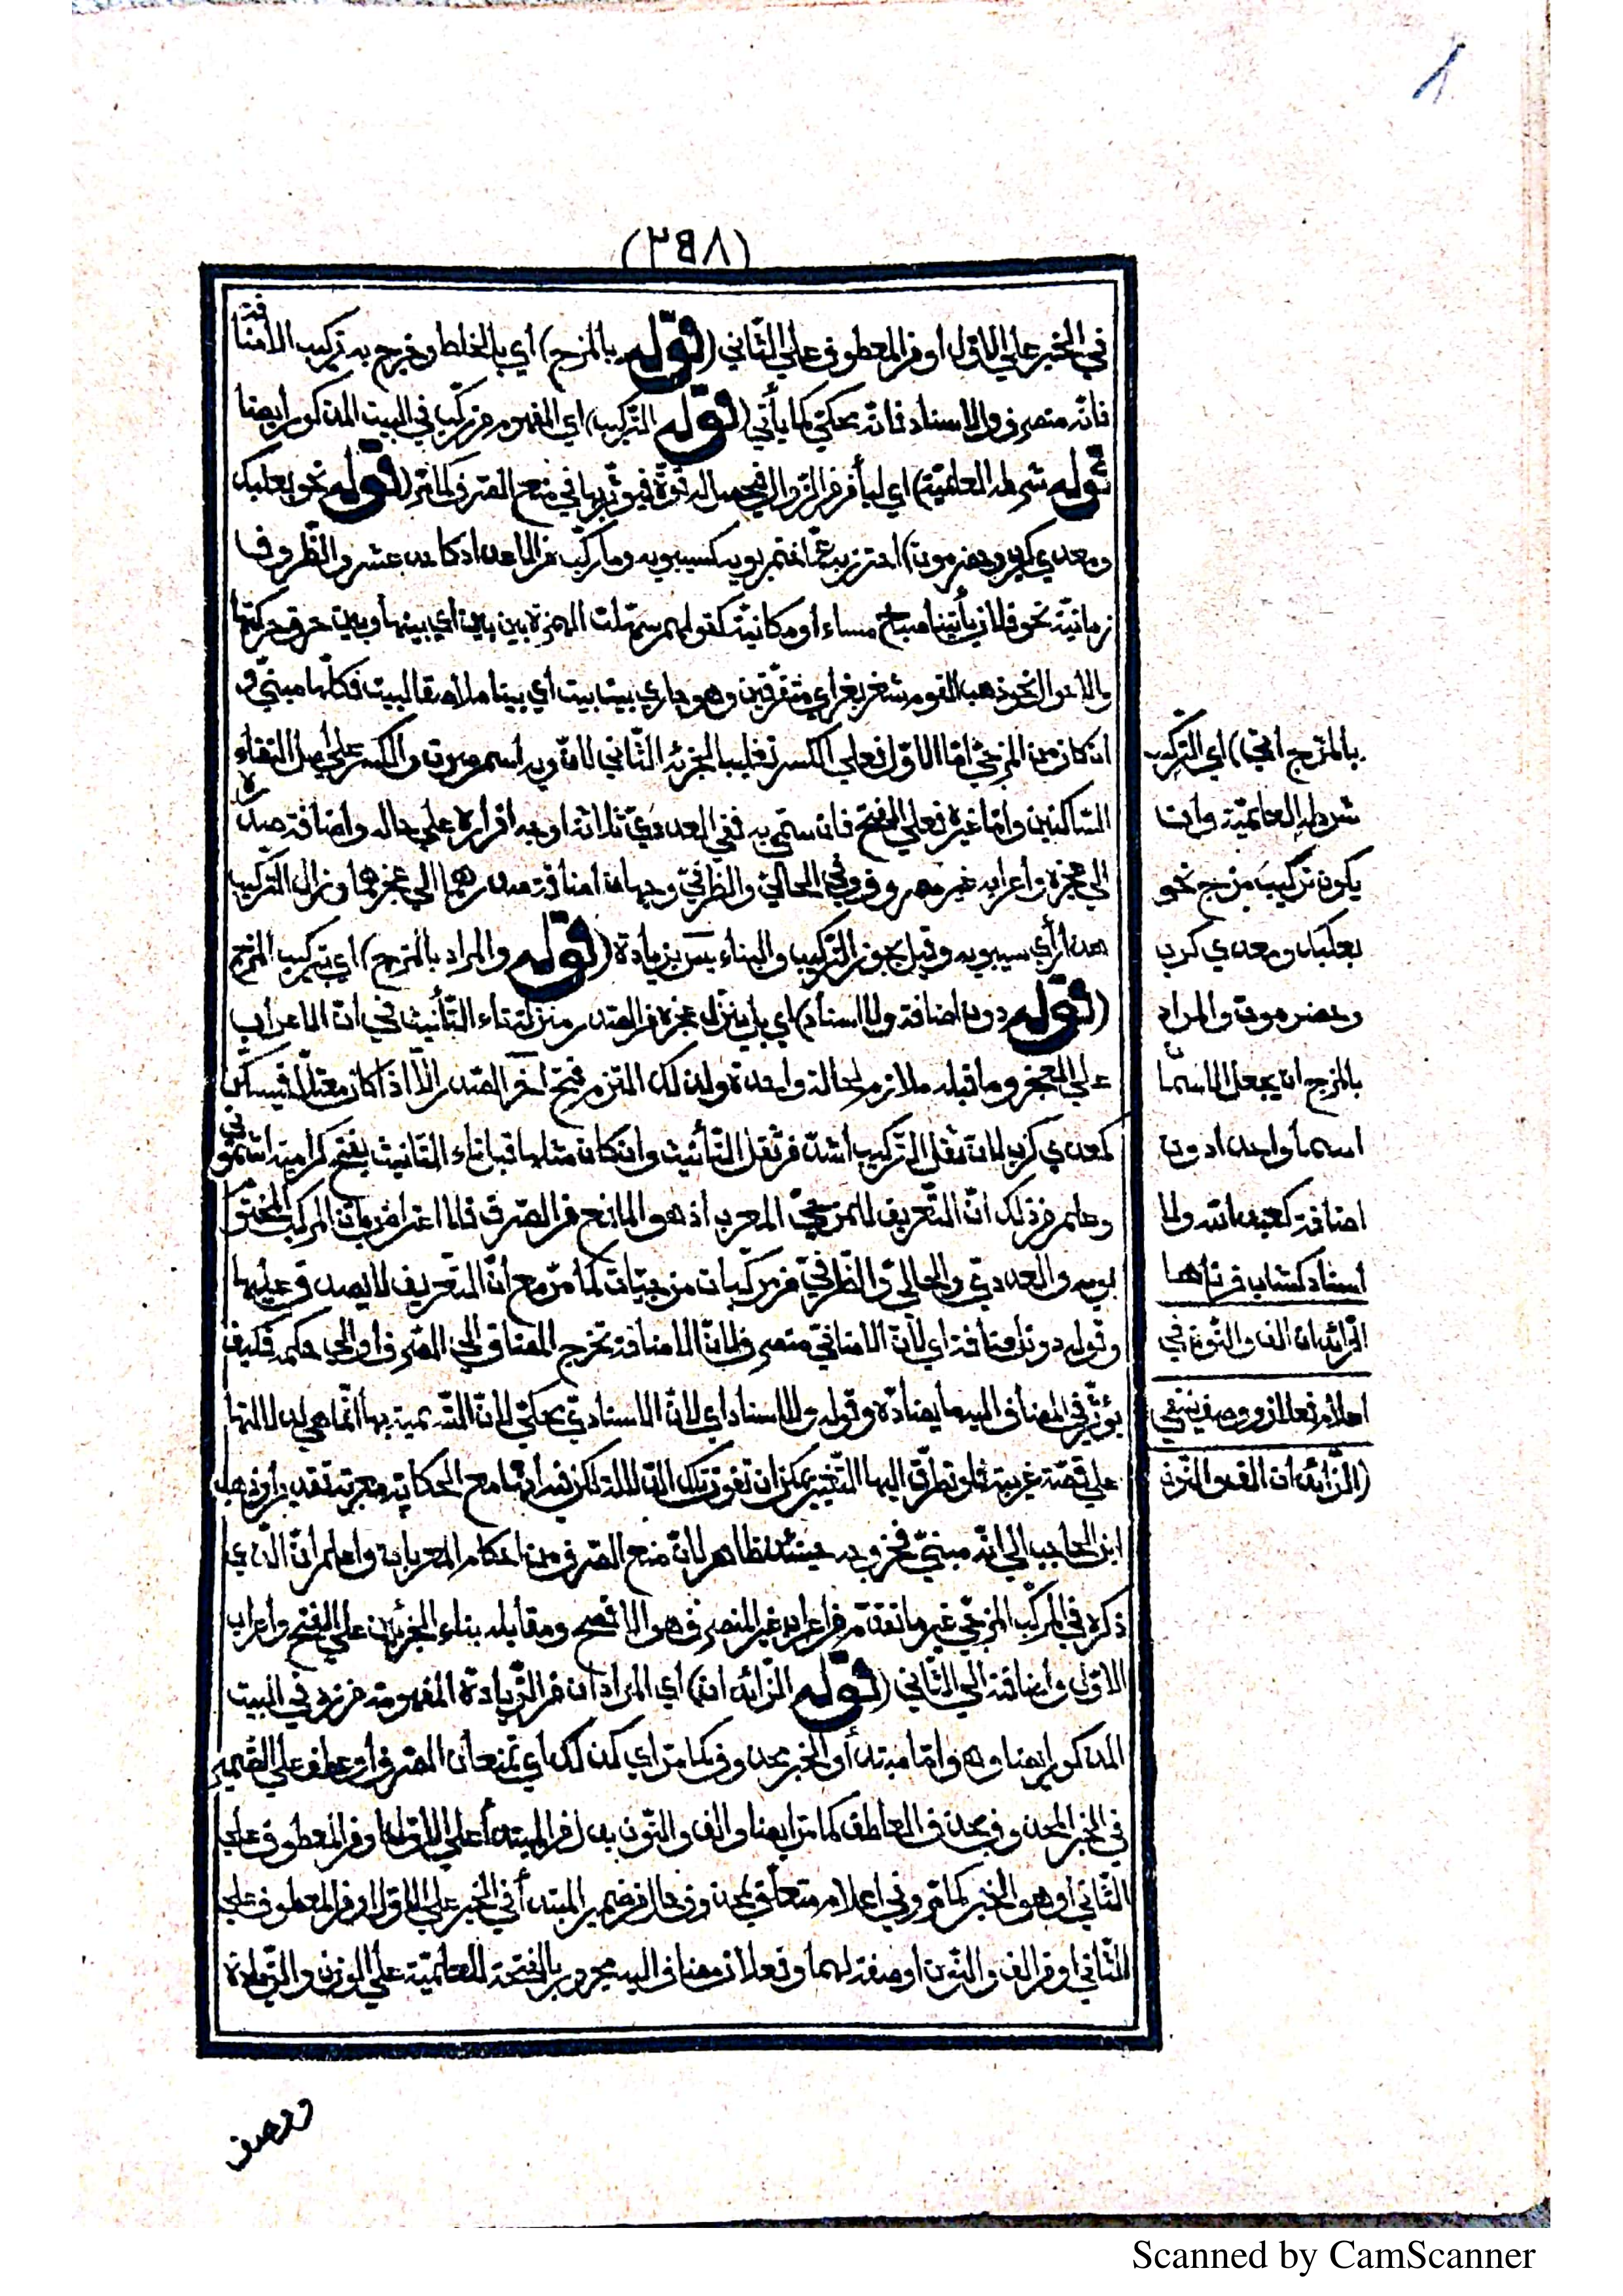 (٢٥٨)
في الخبر علي الاوّل او من المعطوف علي الثّاني (قوله بالمزج) أي بالخلط وخرج به تركيب الاضافة
فانّه منصرف والاسناد فانّه محكيّ كما يأتي (قوله التركيب) اي المفهوم من ركّب في البيت المذكور ايضا
قوله شرطه العلميّة) اي ليأمن من الزّوال فيحصل له قوّة فيؤثّر بها في منع الصّرف كما مرّ (قوله نحو بعلبك
ومعدي كرب وحضرموت) احترز به عمّا ختم بويه كسيبويه وما ركّب من الاعداد كاحد عشر والظّروف
زمانيّة نحو فلان يأتينا صباح مساء أو مكانيّة كقولهم سهّلت الهمزة بين بين اي بينها وبين حرف حركتها
والاحوال نحو ذهب القوم شغر بغر اي متفرّقين وهو جاري بيت بيت أي بيتا ملاصقا لبيت فكلّها مبنيّ و
ان كان من المزجيّ امّا الاوّل فعلي الكسر تغليبا لجزئه الثّاني لانّ ويه اسم صوت والكسر علي أصل التقاء
السّاكنين وامّا غيره فعلي الفتح فان سمّي به ففي العدديّ ثلاثة اوجه اقراره علي حاله واضافة صدره
الي عجزه واعرابه غير مصروف وفي الحاليّ والظّرفيّ وجهان اضافة صدرهما الي عجزهما وزال التّركيب
هذا رأي سيبويه وقيل يجوز التركيب والبناء يس بزيادة (قوله والمراد بالمزج) اي بتركيب المزج
(قوله دون اضافة ولا اسناد) اي بل ينزّل عجزه من الصّدر منزلة تاء التّأنيث في انّ الاعراب
علي العجز وما قبله ملازم لحالة واحدة ولذلك التزم فتح آخر الصّدر الّا اذا كان معتلّا فيسكّن
كمعدي كرب لانّ ثقل التّركيب أشدّ من ثقل التّأنيث وان كان مثلها قبل تاء التّأنيث يفتح كرامية اشموني
وعلم من ذلك انّ التّعريف للمزجيّ المعرب اذ هو المانع من الصّرف فلا اعتراض بانّ المركّب المختوم
بويه والعدديّ والحاليّ والظّرفيّ من مركّبات مزجيّات كما مرّ مع انّ التّعريف لا يصدق عليها
وقوله دون اضافة اي لانّ الاضافيّ منصرف ولانّ الاضافة تخرج المضاف الي الصّرف أو الي حكمه فكيف
يؤثّر في المضاف اليه ما يضادّه وقوله ولا اسناد اي لانّ الاسناديّ محكيّ لانّ التّسمية بها انّما هي لدلالتها
علي قصّة غريبة فلو تطرّق اليها التّغيير يمكن ان تفوت تلك الدّلالة لكن فيه انّها مع الحكاية معربة تقديرا وذهب
ابن الحاجب الي انّه مبنيّ فخروجه حينئذ ظاهر لانّ منع الصّرف من احكام المعربات واعلم انّ الّذي
ذكره في المركّب المزجيّ غير ما تقدّم من اعرابه غير المنصرف هو الافصح ومقابله بناء الجزئين علي الفتح واعراب
الاوّل واضافته الي الثّاني (قوله الزّائدان) أي المرادان من الزّيادة المفهومة من زد في البيت
المذكور ايضا وهو امّا مبتدأ والخبر محذوف كما مرّ اي كذلك أي تمنعان الصّرف أو عطف علي الضّمير
في الخبر المحذوف بحذف العاطف كما مرّ ايضا والف والنّون بدل من المبتدأ علي الاوّل او من المعطوف علي
الثّاني أو هو الخبر كما مرّ وفي اعلام متعلّق بمحذوف حال من ضمير المبتدأ في الخبر علي الاوّل او من المعطوف علي
الثّاني او من الف والنّون او صفة لهما وفعلان مضاف اليه مجرور بالفتحة للعلميّة علي الوزن والزّيادة
بالمزج اي) اي التركيب
شرطه العلميّة وان
يكون تركيب مزج نحو
بعلبك ومعدي كرب
وحضرموت والمراد
بالمزج ان يجعل الاسمان
اسما واحدا دون
اضافة كعبد الله ولا
اسناد كشاب قرناها
الزّائدان الف والنّون في
اعلام فعلان ووصف ينتفي
(الزّائدان الف والنّون